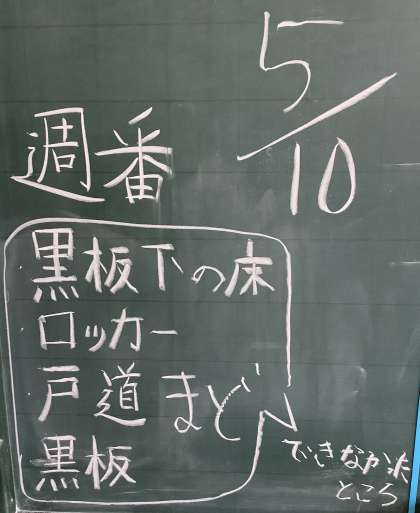 5/10
週番
黒板下の床
ロッカー
戸道 まど
黒板
できなかった
ところ